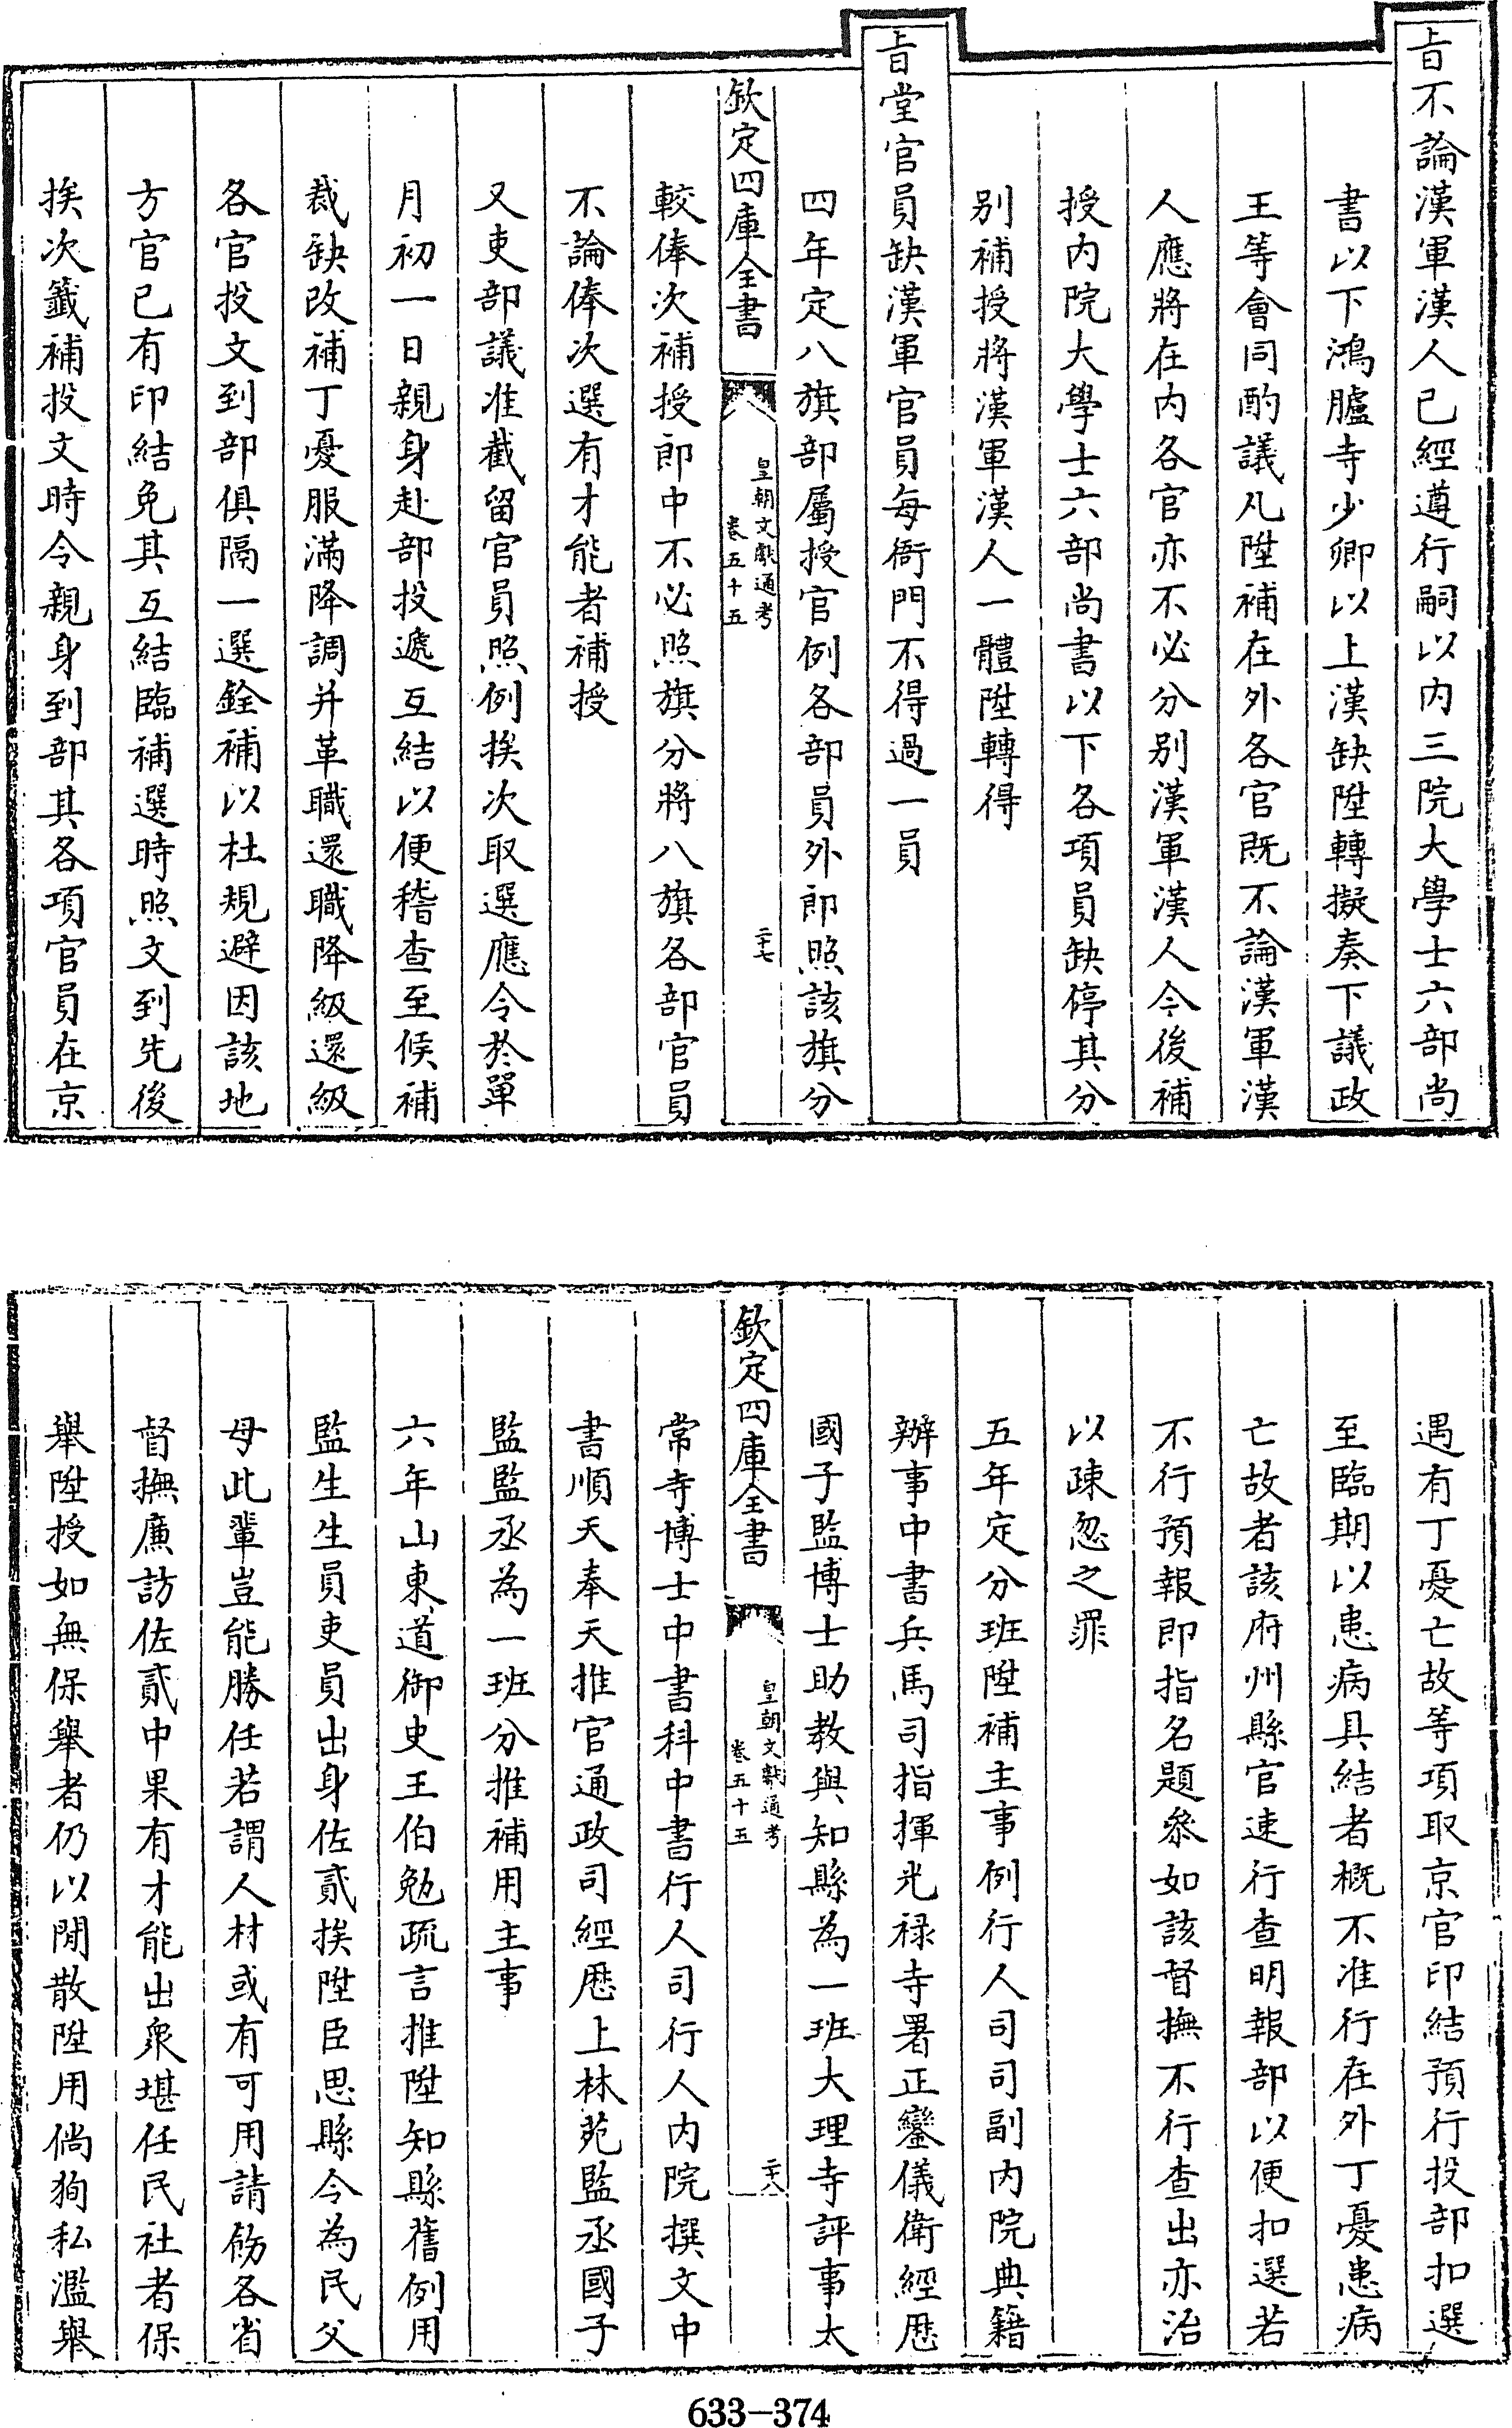 旨不論漢軍漢人已經遵行嗣以内三院大學士六部尚
書以下鴻臚寺少卿以上漢缺陞轉擬奏下議政
王等會同酌議凡陞補在外各官既不論漢軍漢
人應將在内各官亦不必分别漢軍漢人今後補
授内院大學士六部尚書以下各項員缺停其分
别補授將漢軍漢人一體陞轉得
旨堂官員缺漢軍官員每衙門不得過一員
四年定八旗部屬授官例各部員外郎照該旗分
欽定四庫全書
皇朝文獻通考
卷五十五
二十七
較俸次補授郎中不必照旗分將八旗各部官員
不論俸次選有才能者補授
又吏部議准截留官員照例挨次取選應令於單
月初一日親身赴部投遞互結以便稽查至候補
裁缺改補丁憂服滿降調并革職還職降級還級
各官投文到部俱隔一選銓補以杜規避因該地
方官已有印結免其互結臨補選時照文到先後
挨次籤補投文時令親身到部其各項官員在京
遇有丁憂亡故等項取京官印結預行投部扣選
至臨期以患病具結者概不准行在外丁憂患病
亡故者該府州縣官速行查明報部以便扣選若
不行預報即指名題叅如該督撫不行查出亦治
以疎忽之罪
五年定分班陞補主事例行人司司副内院典籍
辦事中書兵馬司指揮光禄寺署正鑾儀衛經歷
國子監博士助教與知縣為一班大理寺評事太
欽定四庫全書
皇朝文獻通考
卷五十五
二十八
常寺博士中書科中書行人司行人内院撰文中
書順天奉天推官通政司經歷上林苑監丞國子
監監丞為一班分推補用主事
六年山東道御史王伯勉疏言推陞知縣舊例用
監生生員吏員出身佐貳挨陞臣思縣令為民父
母此輩豈能勝任若謂人材或有可用請飭各省
督撫廉訪佐貳中果有才能出衆堪任民社者保
舉陞授如無保舉者仍以閒散陞用倘狥私濫舉
633-374